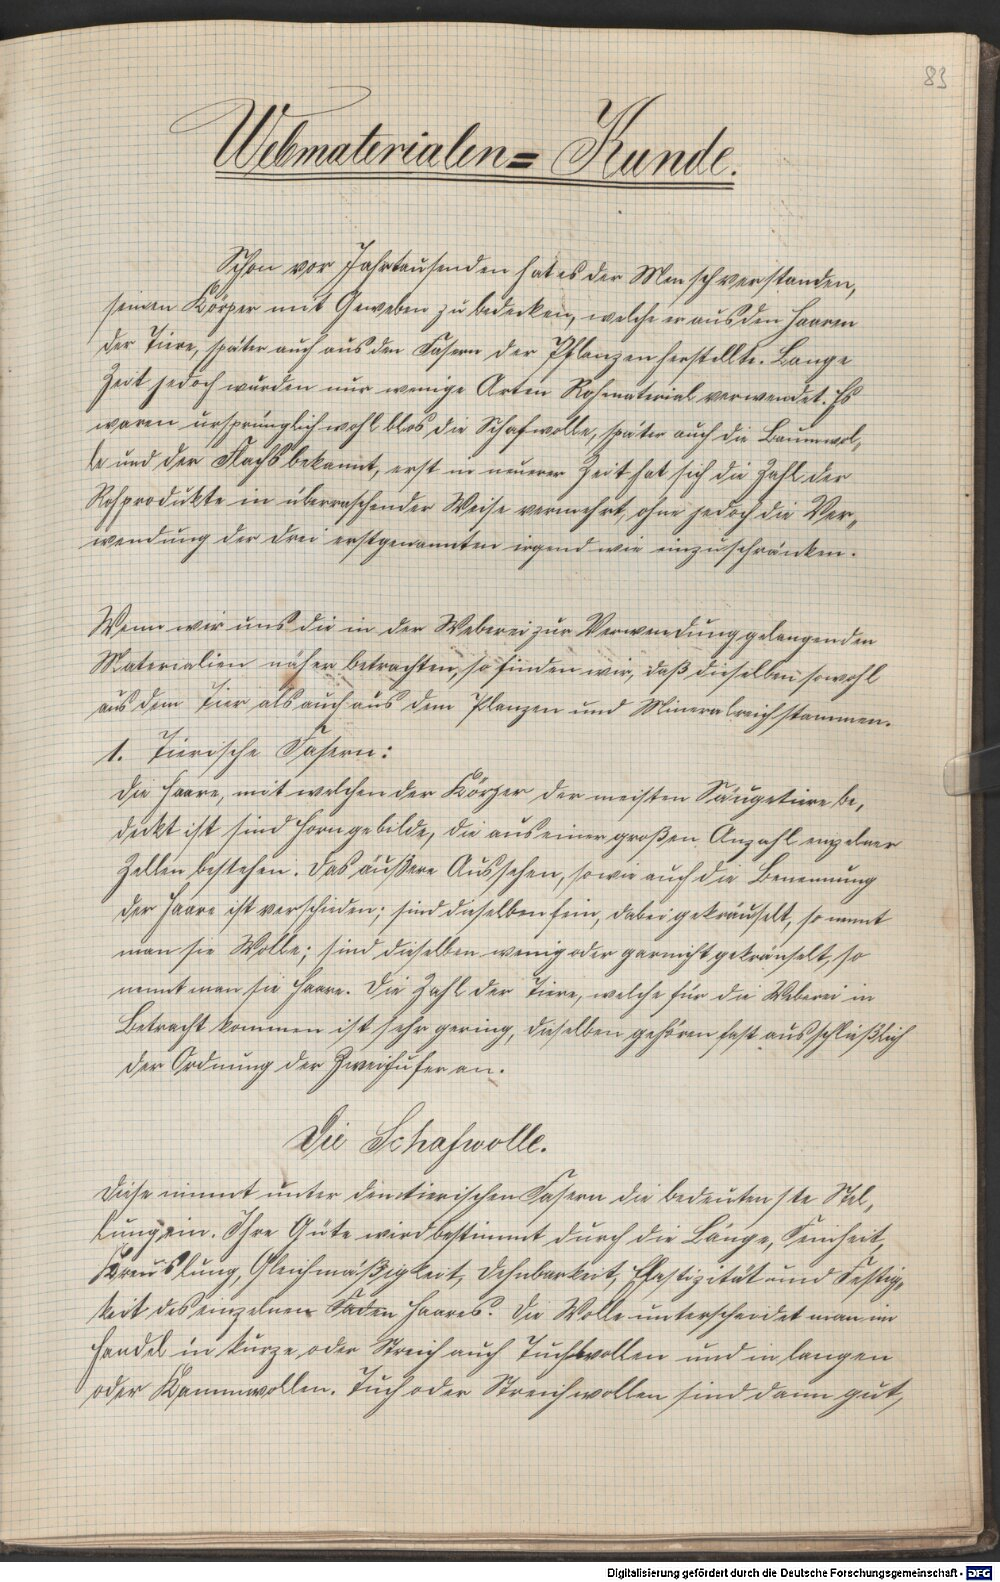 83
Webmaterialen= Kunde.
Schon vor Jahrtausenden hat es der Mensch verstanden,
seinen Körper mit Geweben zu bedecken, welche er aus den Haaren
der Tiere, später auch aus den Fasern der Pflanzen herstellte. Lange
Zeit jedoch wurden nur wenige Arten Rohmaterial verwendet. Es
waren ursprünglich wohl blos die Schafwolle, später auch die Baumwol„
le und der Flachs bekannt, erst in neuerer Zeit hat sich die Zahl der
Rohprodukte in überraschender Weise vermehrt, ohne jedoch die Ver„
wendung der drei erstgenannten irgend wie einzuschränken.
Wenn wir uns die in der Weberei zur Verwendung gelangenden
Materialien näher betrachten, so finden wir, daß dieselben sowohl
aus dem Tier als auch aus dem Planzen und Mineralreich stammen.
1. Tierische Fasern:
Die Haare, mit welchen der Körper der meisten Säugetiere be„
deckt ist sind Horngebilde, die aus einer großen Anzahl einzelner
Zellen bestehen. Das äußere Aussehen, sowie auch die Benennung
der Haare ist verschieden; sind dieselben fein, dabei gekräuselt, so nennt
man sie Wolle; sind dieselben wenig oder garnicht gekräuselt, so
nennt man sie Haare. Die Zahl der Tiere, welche für die Weberei in
Betracht kommen ist sehr gering, dieselben gehören fast ausschließlich
der Ordnung der Zweihufer an.
Die Schafwolle.
Diese nimmt unter den tierischen Fasern die bedeutenste Stel„
lung ein. Ihre Güte wird bestimmt durch die Länge, Feinheit,
Kreuslung, Gleichmäßigkeit, Dehnbarkeit, Elastizität und Festig„
keit des einzelnen Faden Haares. Die Wolle unterscheidet man im
Handel in kurze oder Streich auch Tuchwollen und in langen
oder Kammwollen. Tuch oder Streichwollen sind dann gut,
Digitalisierung gefördert durch die Deutsche Forschungsgemeinschaft - DFG